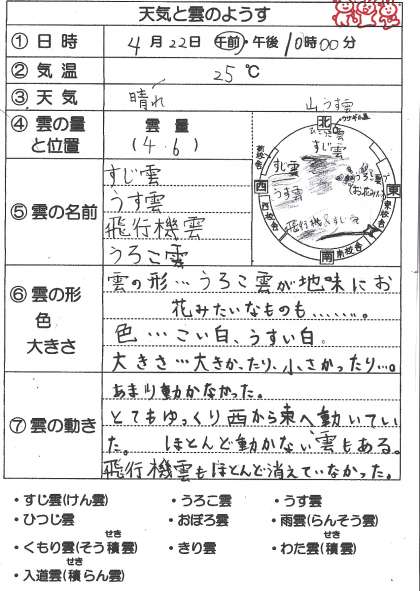 天気と雲のようす
① 日 時
4月22日 午前・午後 10時00分
② 気 温
25℃
③ 天 気
晴れ
④ 雲の量と位置
雲 量
(4.6)
山うす雲
北
すじ雲
すじ雲
うす雲
飛行機&すじ雲
西
東
南
南校舎
⑤ 雲の名前
すじ雲
うす雲
飛行機雲
うろこ雲
⑥ 雲の形
色
大きさ
雲の形…うろこ雲が地味にお
花みたいなものも…….。
色…こい白、うすい白。
大きさ…大きかったり、小さかったり…。
⑦ 雲の動き
あまり動かなかった。
とてもゆっくり西から東へ動いてい
た。 ほとんど動かない雲もある。
飛行機雲もほとんど消えていなかった。
・すじ雲(けん雲) ・うろこ雲 ・うす雲
・ひつじ雲 ・おぼろ雲 ・雨雲(らんそう雲)
せき せき
・くもり雲(そう積雲) ・きり雲 ・わた雲(積雲)
せき
・入道雲(積らん雲)